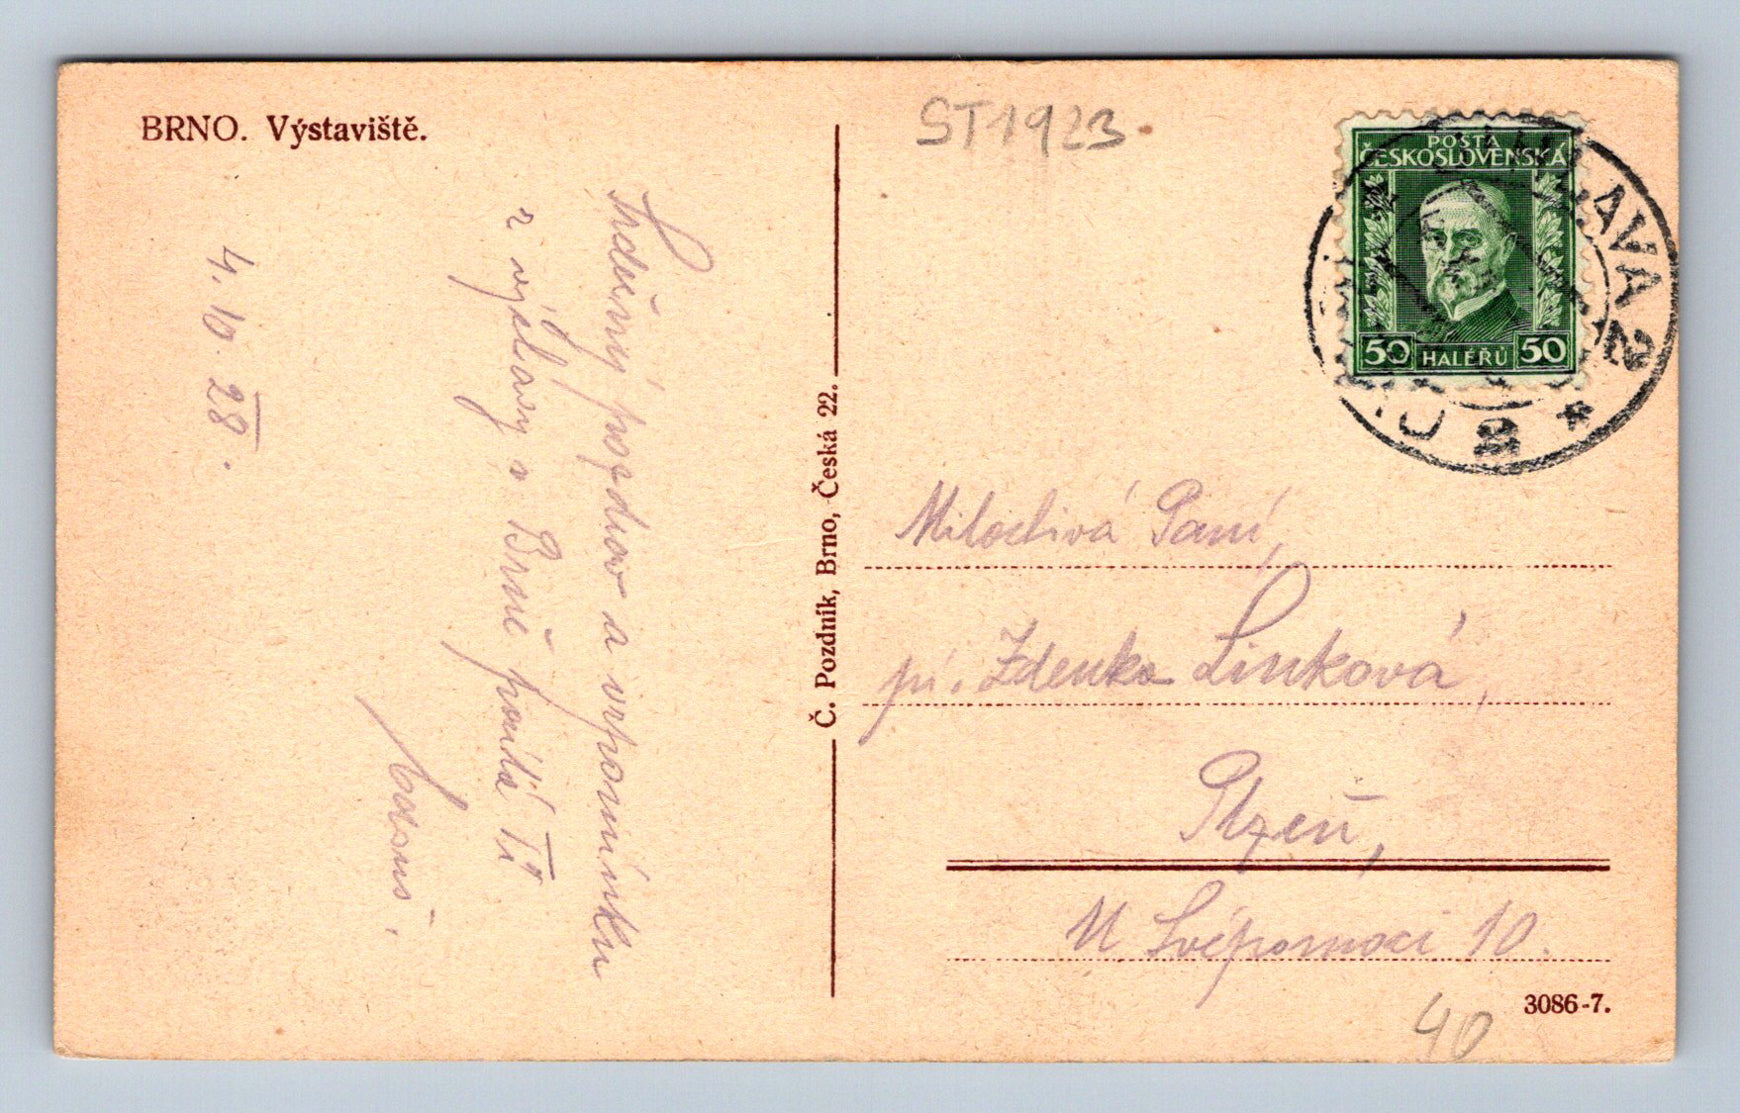 BRNO. Výstaviště.
ST1923.
POŠTA
ČESKOSLOVENSKÁ
50 HALÉŘŮ 50
JIHLAVA 2
Srdečný pozdrav a vzpomínku
z výstavy v Brně posílá Ti
4. 10. 28.
Č. Pozdník, Brno, Česká 22.
Milostivá Paní,
pí. Zdenka Linková,
Plzeň,
U Svépomoci 10.
3086-7.
40